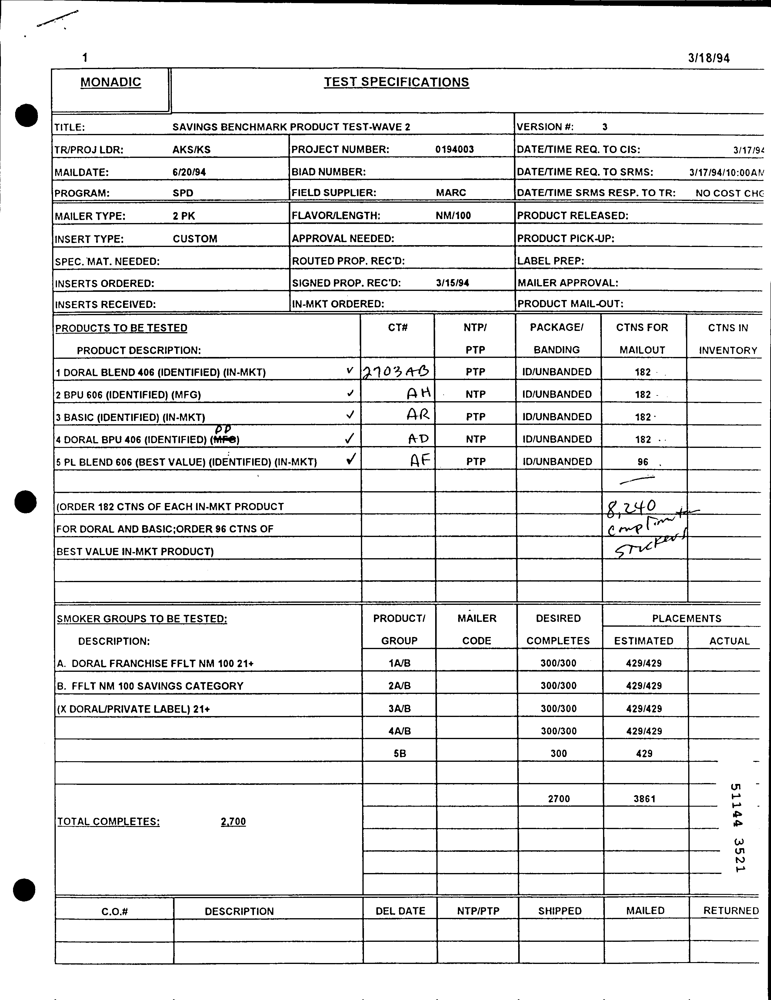 1 3/18/94
MONADIC TEST SPECIFICATIONS
TITLE: SAVINGS BENCHMARK PRODUCT TEST-WAVE 2 VERSION #: 3
TR/PROJ LDR: AKS/KS PROJECT NUMBER: 0194003 DATE/TIME REQ. TO CIS: 3/17/94
MAILDATE: 6/20/94 BIAD NUMBER: DATE/TIME REQ. TO SRMS: 3/17/94/10:00AM
PROGRAM: SPD FIELD SUPPLIER: MARC DATE/TIME SRMS RESP. TO TR: NO COST CHG
MAILER TYPE: 2 PK FLAVOR/LENGTH: NM/100 PRODUCT RELEASED:
INSERT TYPE: CUSTOM APPROVAL NEEDED: PRODUCT PICK-UP:
SPEC. MAT. NEEDED: ROUTED PROP. REC'D: LABEL PREP:
INSERTS ORDERED: SIGNED PROP. REC'D: 3/15/94 MAILER APPROVAL:
INSERTS RECEIVED: IN-MKT ORDERED: PRODUCT MAIL-OUT:
PRODUCTS TO BE TESTED CT# NTP/ PACKAGE/ CTNS FOR CTNS IN
PRODUCT DESCRIPTION: PTP BANDING MAILOUT INVENTORY
1 DORAL BLEND 406 (IDENTIFIED) (IN-MKT) ✓ 2703AB PTP ID/UNBANDED 182
2 BPU 606 (IDENTIFIED) (MFG) ✓ AH NTP ID/UNBANDED 182
3 BASIC (IDENTIFIED) (IN-MKT) ✓ AR PTP ID/UNBANDED 182
PP
4 DORAL BPU 406 (IDENTIFIED) (MFG) ✓ AD NTP ID/UNBANDED 182
5 PL BLEND 606 (BEST VALUE) (IDENTIFIED) (IN-MKT) ✓ AF PTP ID/UNBANDED 96
(ORDER 182 CTNS OF EACH IN-MKT PRODUCT 8,240
FOR DORAL AND BASIC;ORDER 96 CTNS OF
BEST VALUE IN-MKT PRODUCT) STICKERS
SMOKER GROUPS TO BE TESTED: PRODUCT/ MAILER DESIRED PLACEMENTS
DESCRIPTION: GROUP CODE COMPLETES ESTIMATED ACTUAL
A. DORAL FRANCHISE FFLT NM 100 21+ 1A/B 300/300 429/429
B. FFLT NM 100 SAVINGS CATEGORY 2A/B 300/300 429/429
(X DORAL/PRIVATE LABEL) 21+ 3A/B 300/300 429/429
4A/B 300/300 429/429
5B 300 429
2700 3861
TOTAL COMPLETES: 2,700
51144 3521
C.O.# DESCRIPTION DEL DATE NTP/PTP SHIPPED MAILED RETURNED